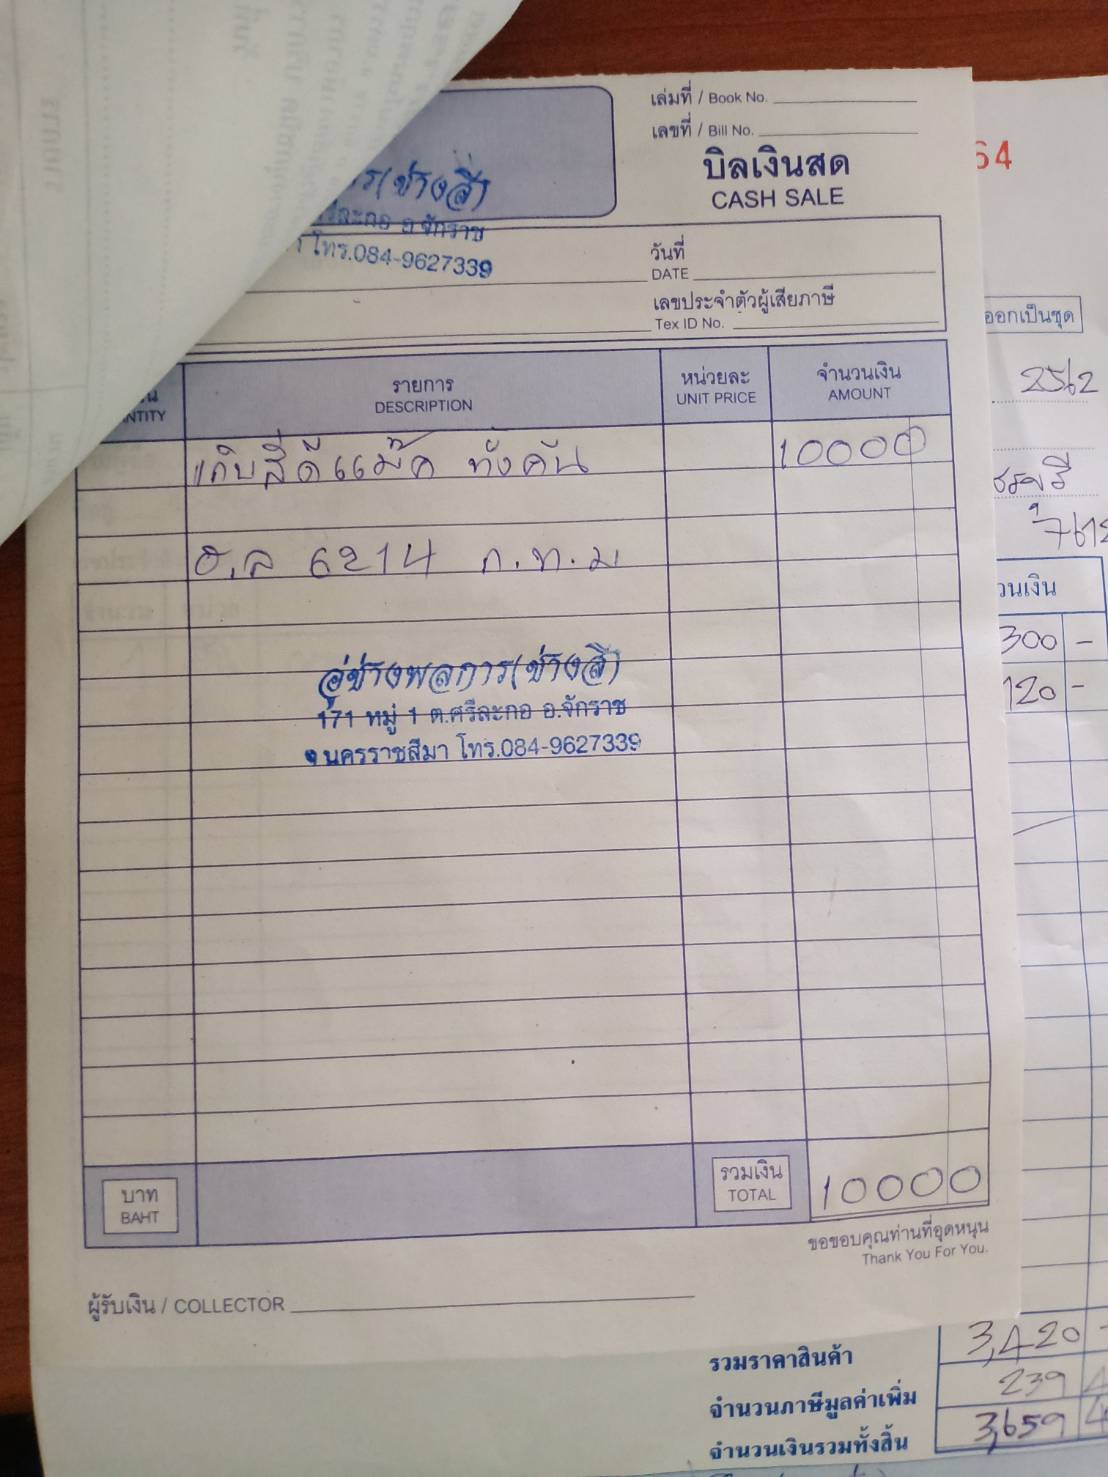 เล่มที่ / Book No.
เลขที่ / Bill No.
บิลเงินสด
CASH SALE
54
การ(ช่างสี)
ศรีละกอ อ.จักราช
โทร.084-9627339
วันที่
DATE
เลขประจำตัวผู้เสียภาษี
Tex ID No.
ออกเป็นชุด
2562
รายการ
DESCRIPTION
หน่วยละ
UNIT PRICE
จำนวนเงิน
AMOUNT
เก็บสีดีแม๊ค ทั้งคัน 10000
ฮ.ล 6214 ก.ท.ม
วนเงิน
300 -
120 -
อู่ช่างพลการ(ช่างสี)
171 หมู่ 1 ต.ศรีละกอ อ.จักราช
จ.นครราชสีมา โทร.084-9627339
บาท
BAHT
รวมเงิน
TOTAL
10000
ขอขอบคุณท่านที่อุดหนุน
Thank You For You.
ผู้รับเงิน / COLLECTOR
รวมราคาสินค้า 3,420 -
จำนวนภาษีมูลค่าเพิ่ม 239
จำนวนเงินรวมทั้งสิ้น 3,659